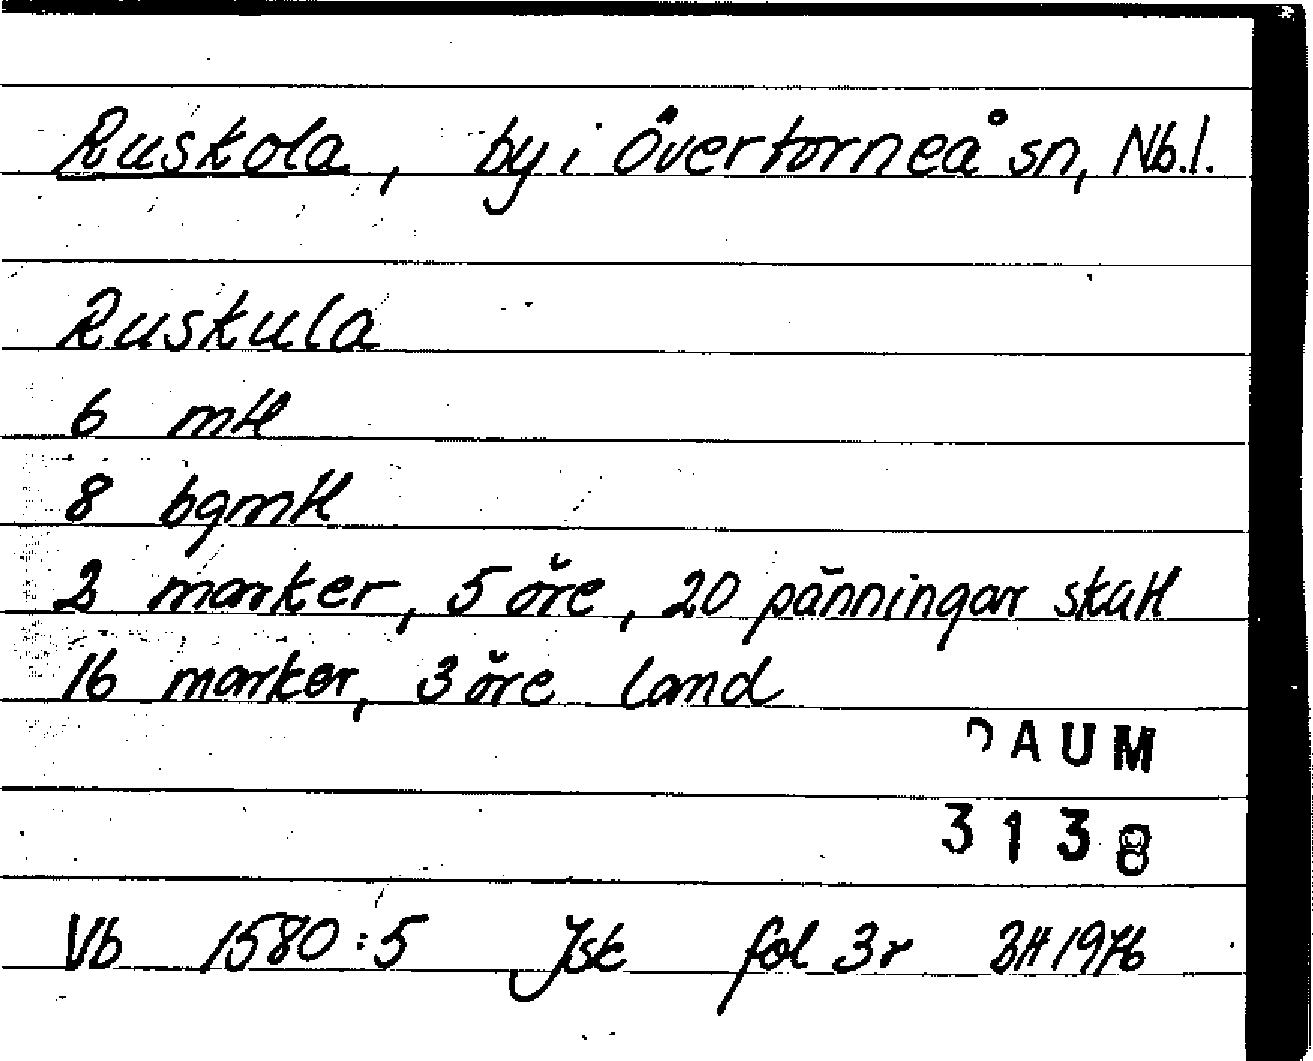 Ruskola, by i Övertorneå sn, Nb.l.
Ruskula
6 mtl
8 bgmtl
2 marker, 5 öre, 20 pänningar skatt
16 marker, 3 öre land
DAUM
3138
Vb 1580:5 Jsk fol 3r BH 1976